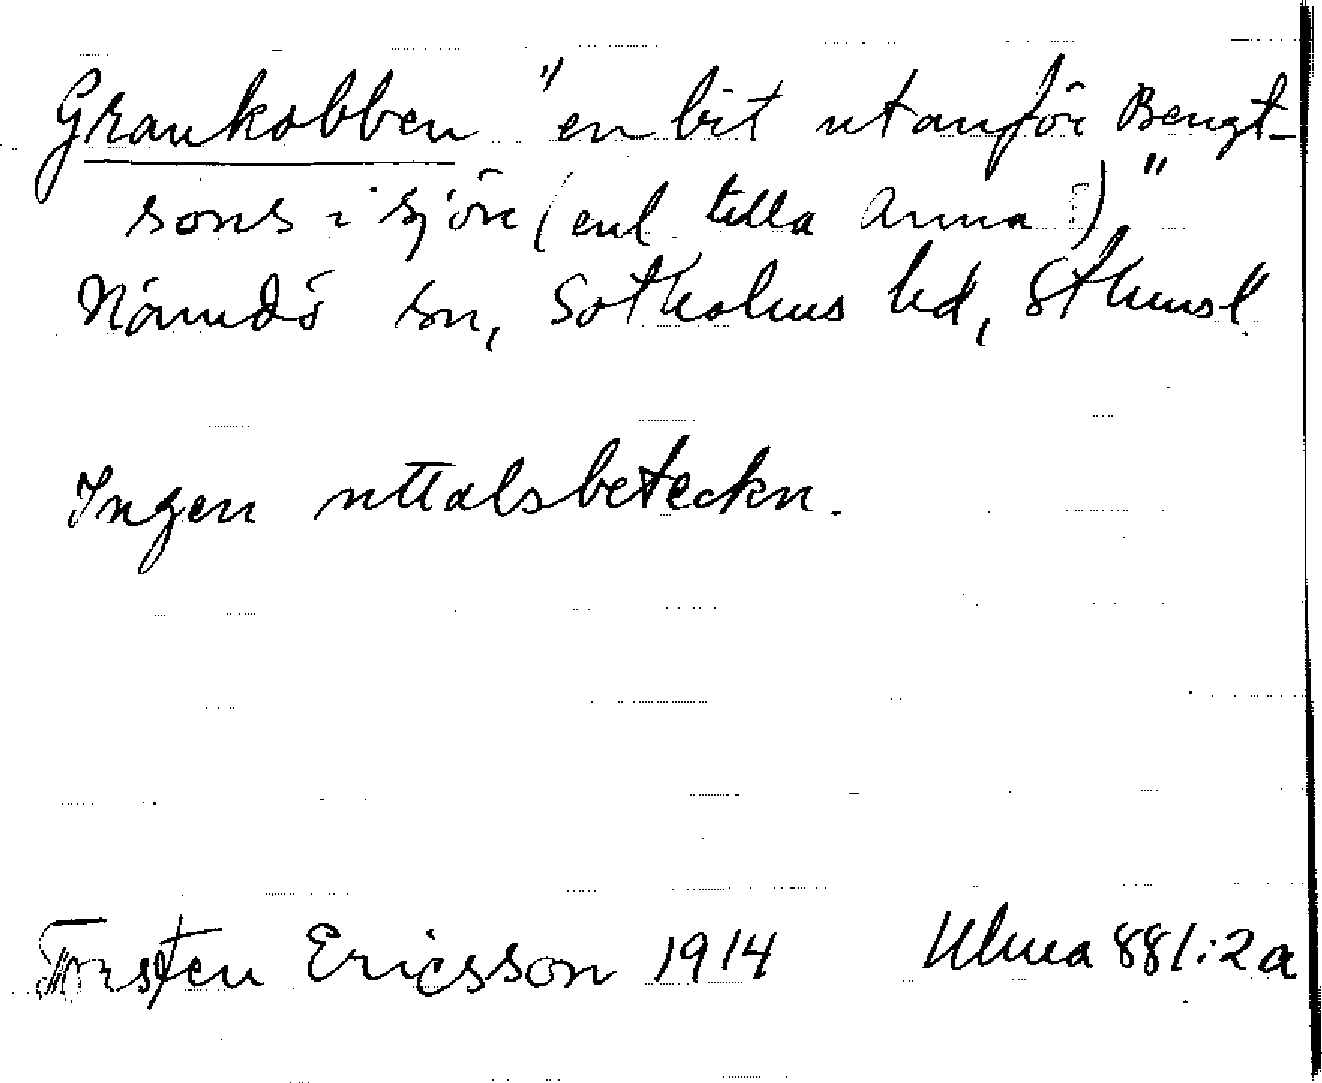 Grankobben "en bit utanför Bengt-
sons i sjön (enl. Lilla Anna)"
Nämdö sn, Sotholms hd, Sthmsl.
Ingen uttalsbeteckn.
Torsten Ericsson 1914 Ulma 881:2a